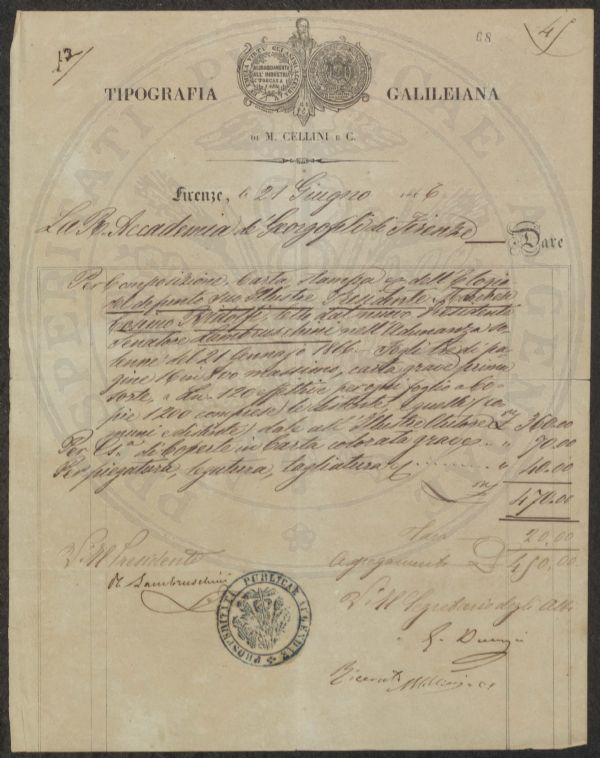 68
4
13
TIPOGRAFIA GALILEIANA
DI M. CELLINI E C.
Firenze, li 21 Giugno 1866
La R. Accademia de' Georgofili di Firenze Dare
Per Composizione, Carta, Stampa ec. dell'Elogio
del defunto suo Illustre Presidente Marchese
Cosimo Ridolfi, letto dal nuovo Presidente
Senatore Lambruschini nell'Adunanza so-
lenne del 21 Gennajo 1866. Fogli tre di pa-
gine 16 in 8vo massimo, carta grave prima
sorte, a Lire 120 effettive per ogni foglio a Co-
pie 1200 comprese le distinte, e quelle co-
muni e distinte date all'Illustre Autore £ 360.00
Per Cs.a di Coperte in Carta colorata grave " 70.00
Per piegatura, legatura, tagliatura " 40.00
470.00
20.00
450.00
V.o Il Presidente
R. Lambruschini
V.o Il Segretario degli Atti
PROSPERITATI PUBLICAE AUGENDAE